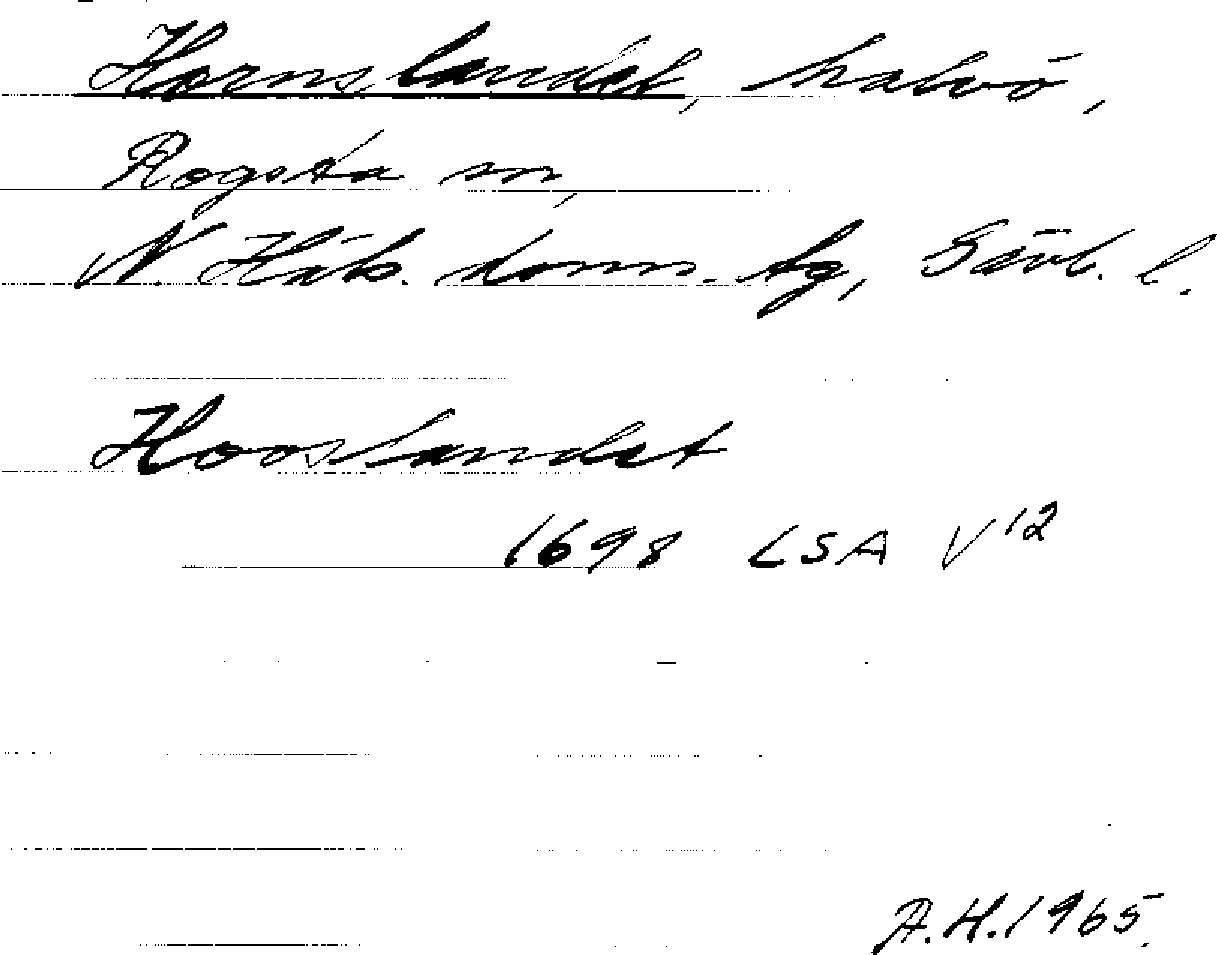 Hornslandet, halvö,
Rogsta sn,
N. Häls. doms. tg, Gävb. l.
Hooslandet
1698 LSA V¹²
A.H. 1965.